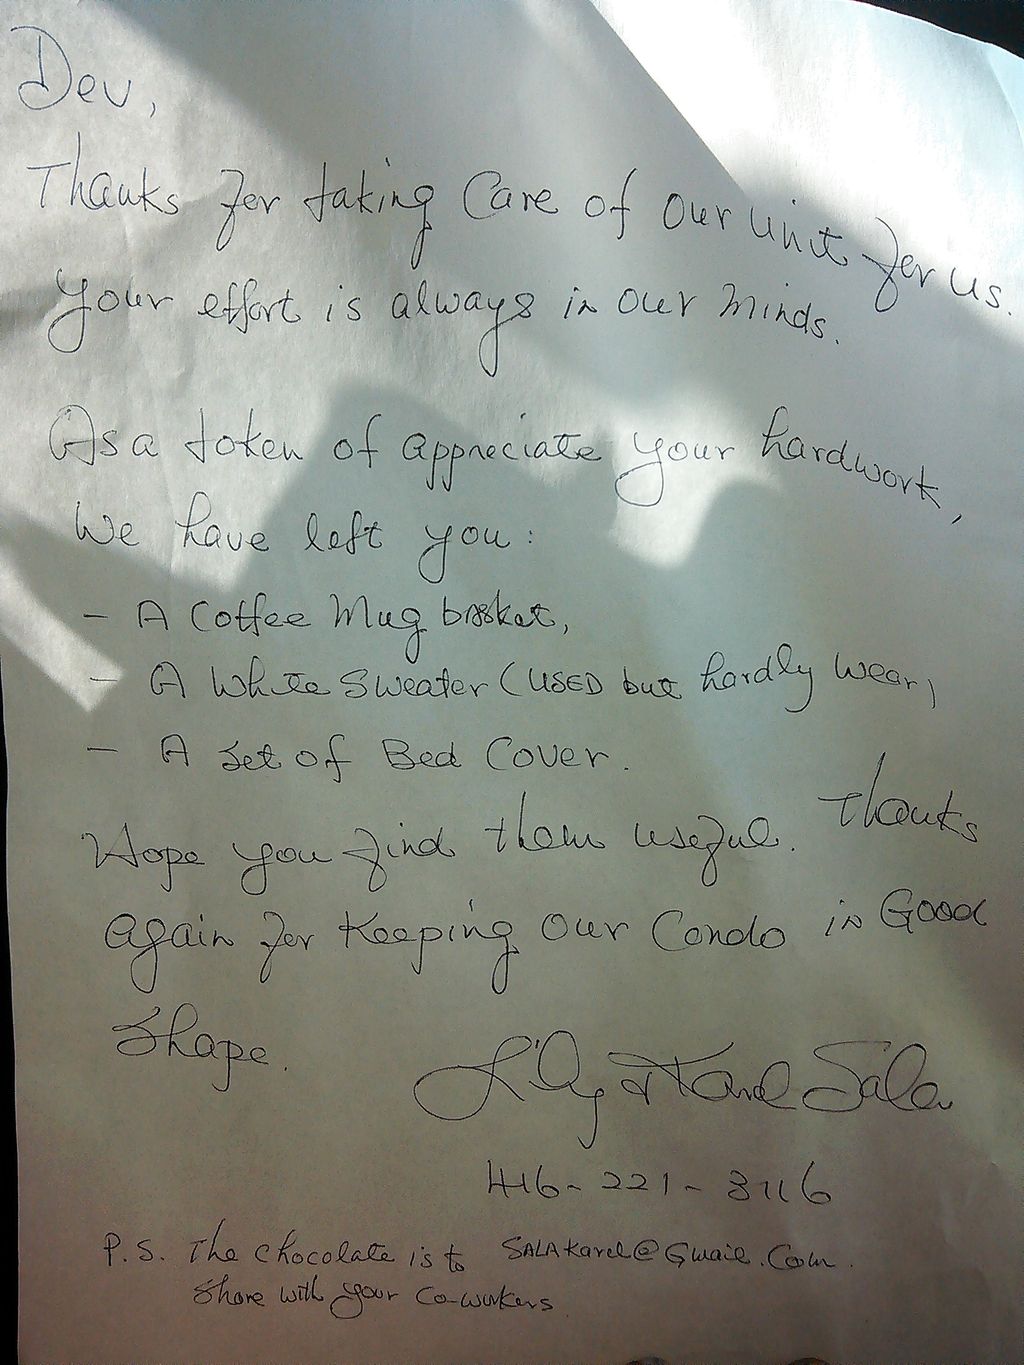 Dev,
Thanks for taking Care of our unit for us.
Your effort is always in our minds.
As a token of appreciate your hardwork,
We have left you:
- A Coffee Mug basket,
- A White Sweater (USED but hardly wear)
- A set of Bed Cover.
Hope you find them useful. Thanks
again for keeping our Condo in Good
Shape.
Lily & Karel Sala
416-221-3116
P.S. The chocolate is to SALAKarel@Gmail.Com.
Share with your Co-workers